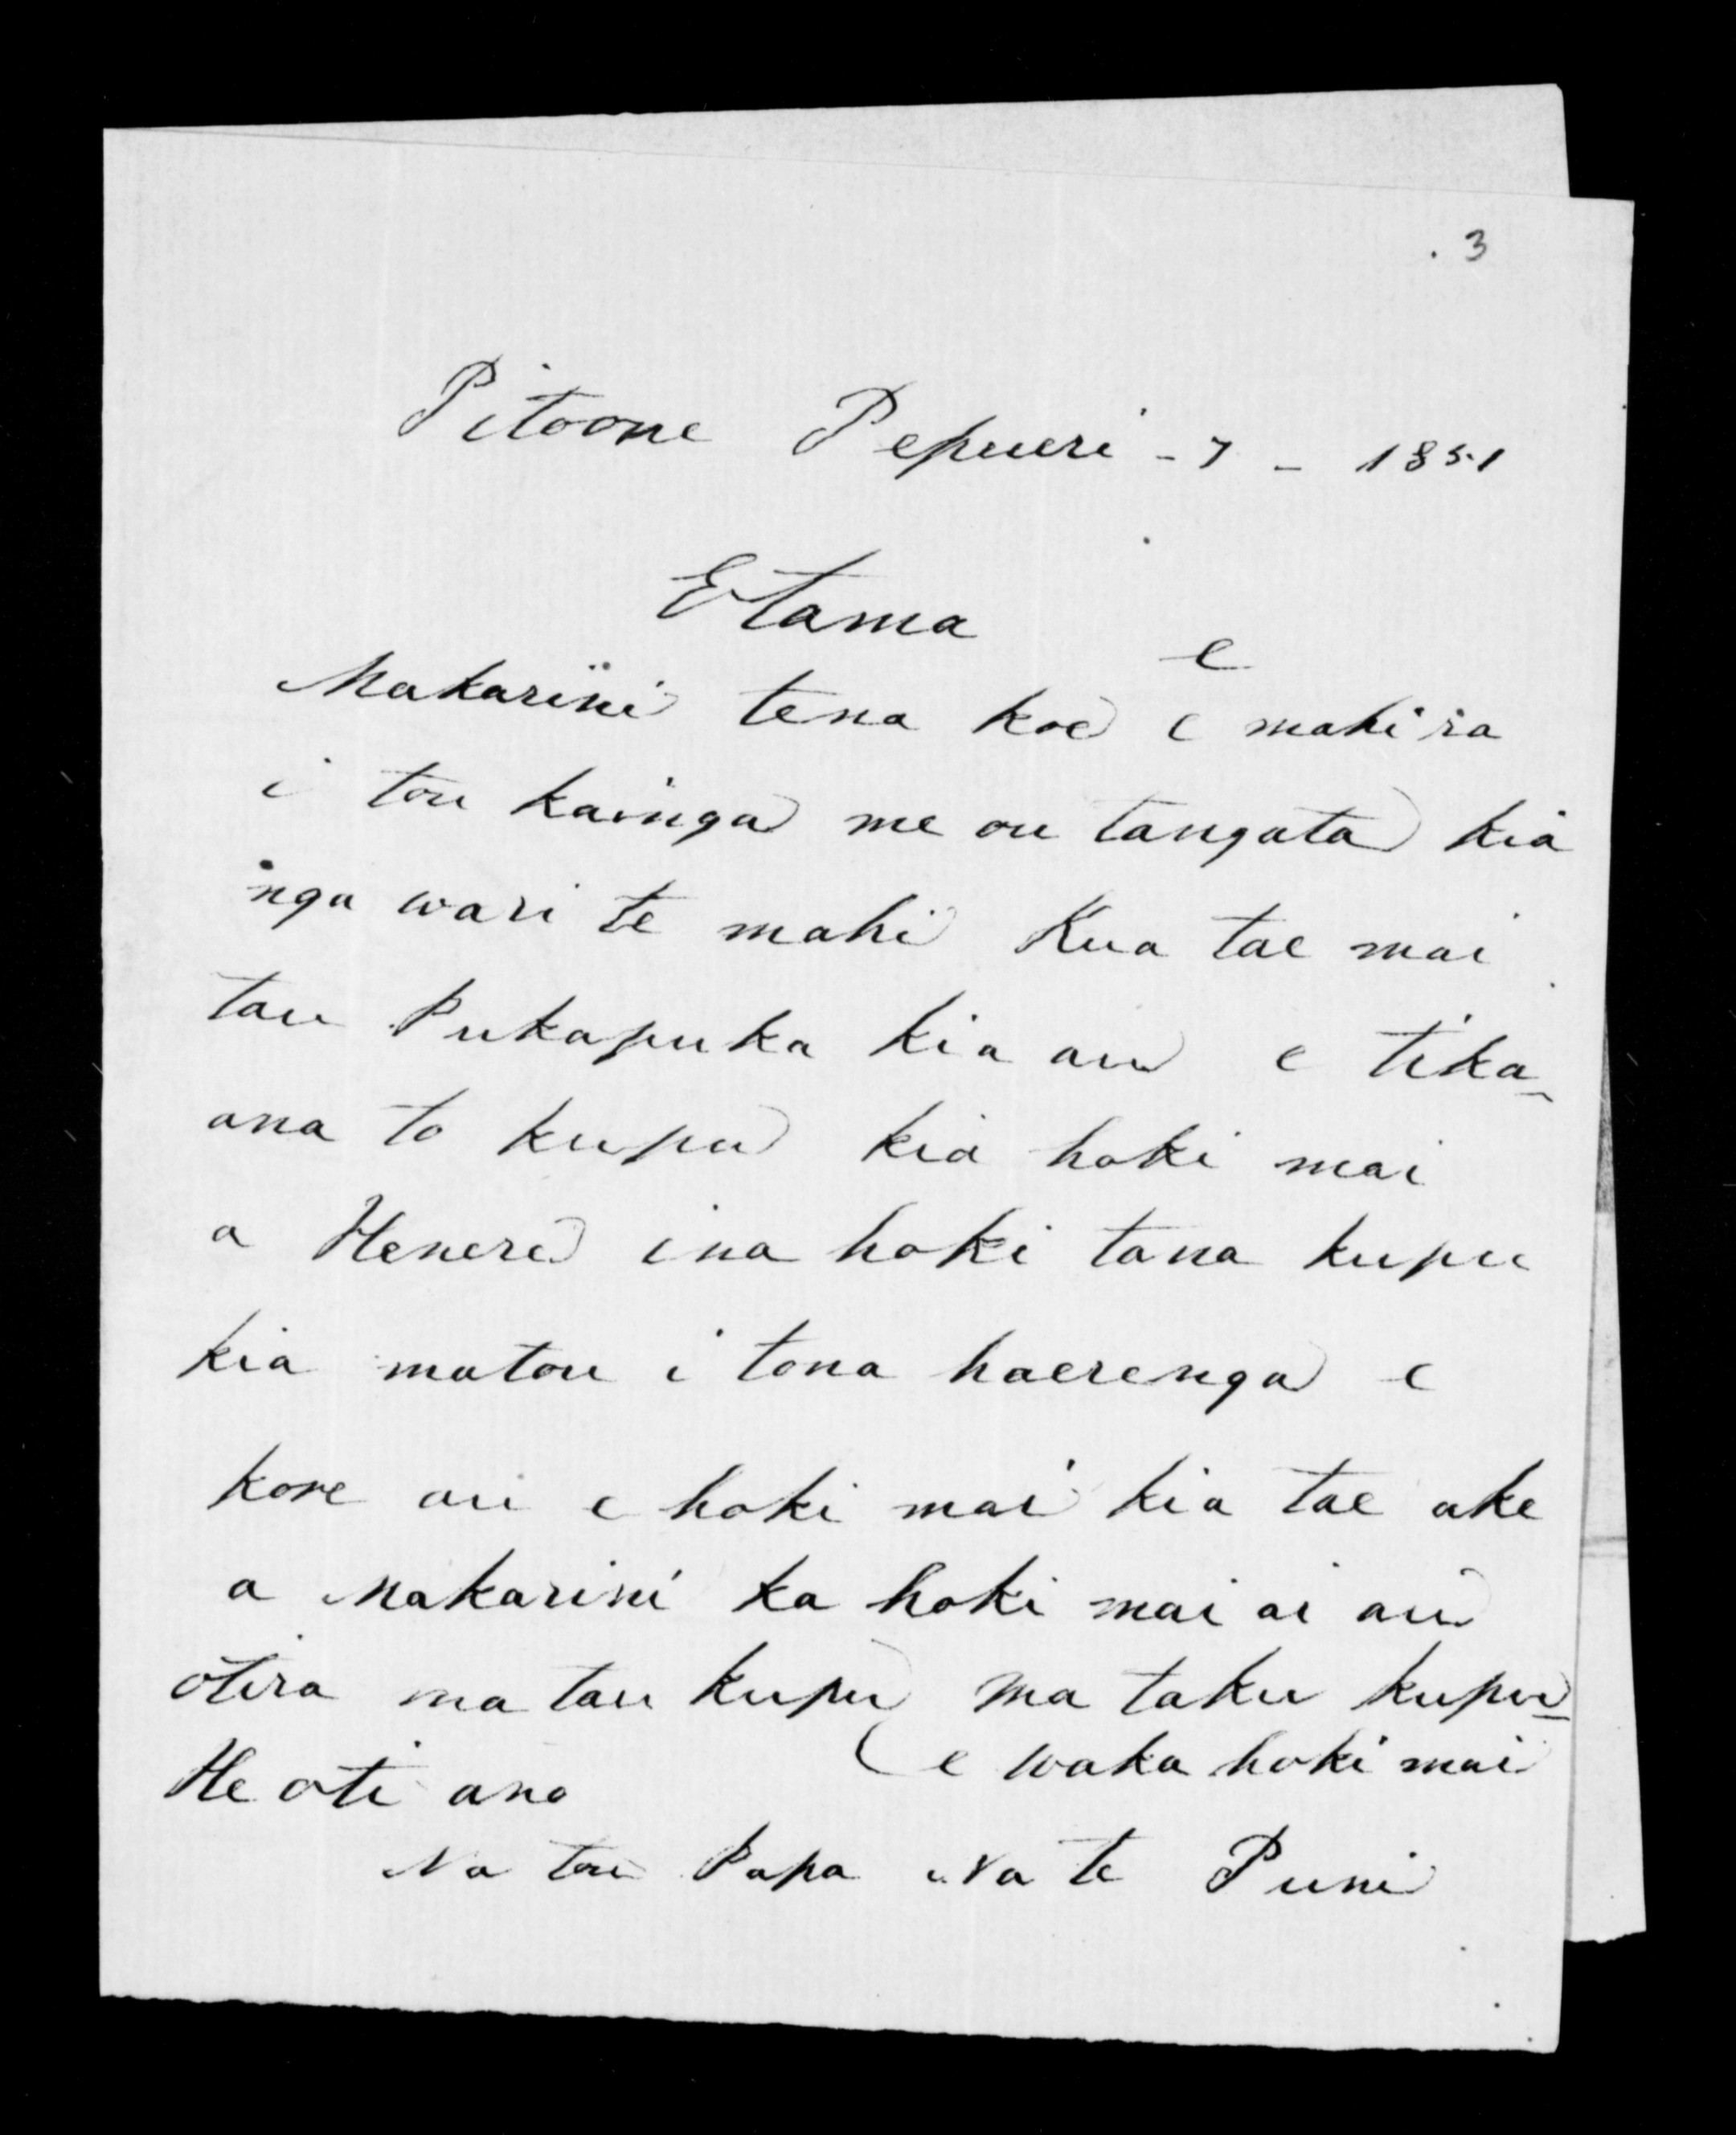 . 3
Pitoone Pepueri - 7 - 1851
E tama
e
Makarini tena koe e mahi ra
i tou kainga me ou tangata kia
nga wari te mahi Kua tae mai
tau Pukapuka kia au e tika
ana to kupu kia hoki mai
a Henere ina hoki tana kupu
kia matou i tona haerenga e
kore au e hoki mai kia tae ake
a Makarini ka hoki mai ai au
otira ma tau kupu ma taku kupu
e waka hoki mai
He oti ano
Na tou Papa Na te Puni